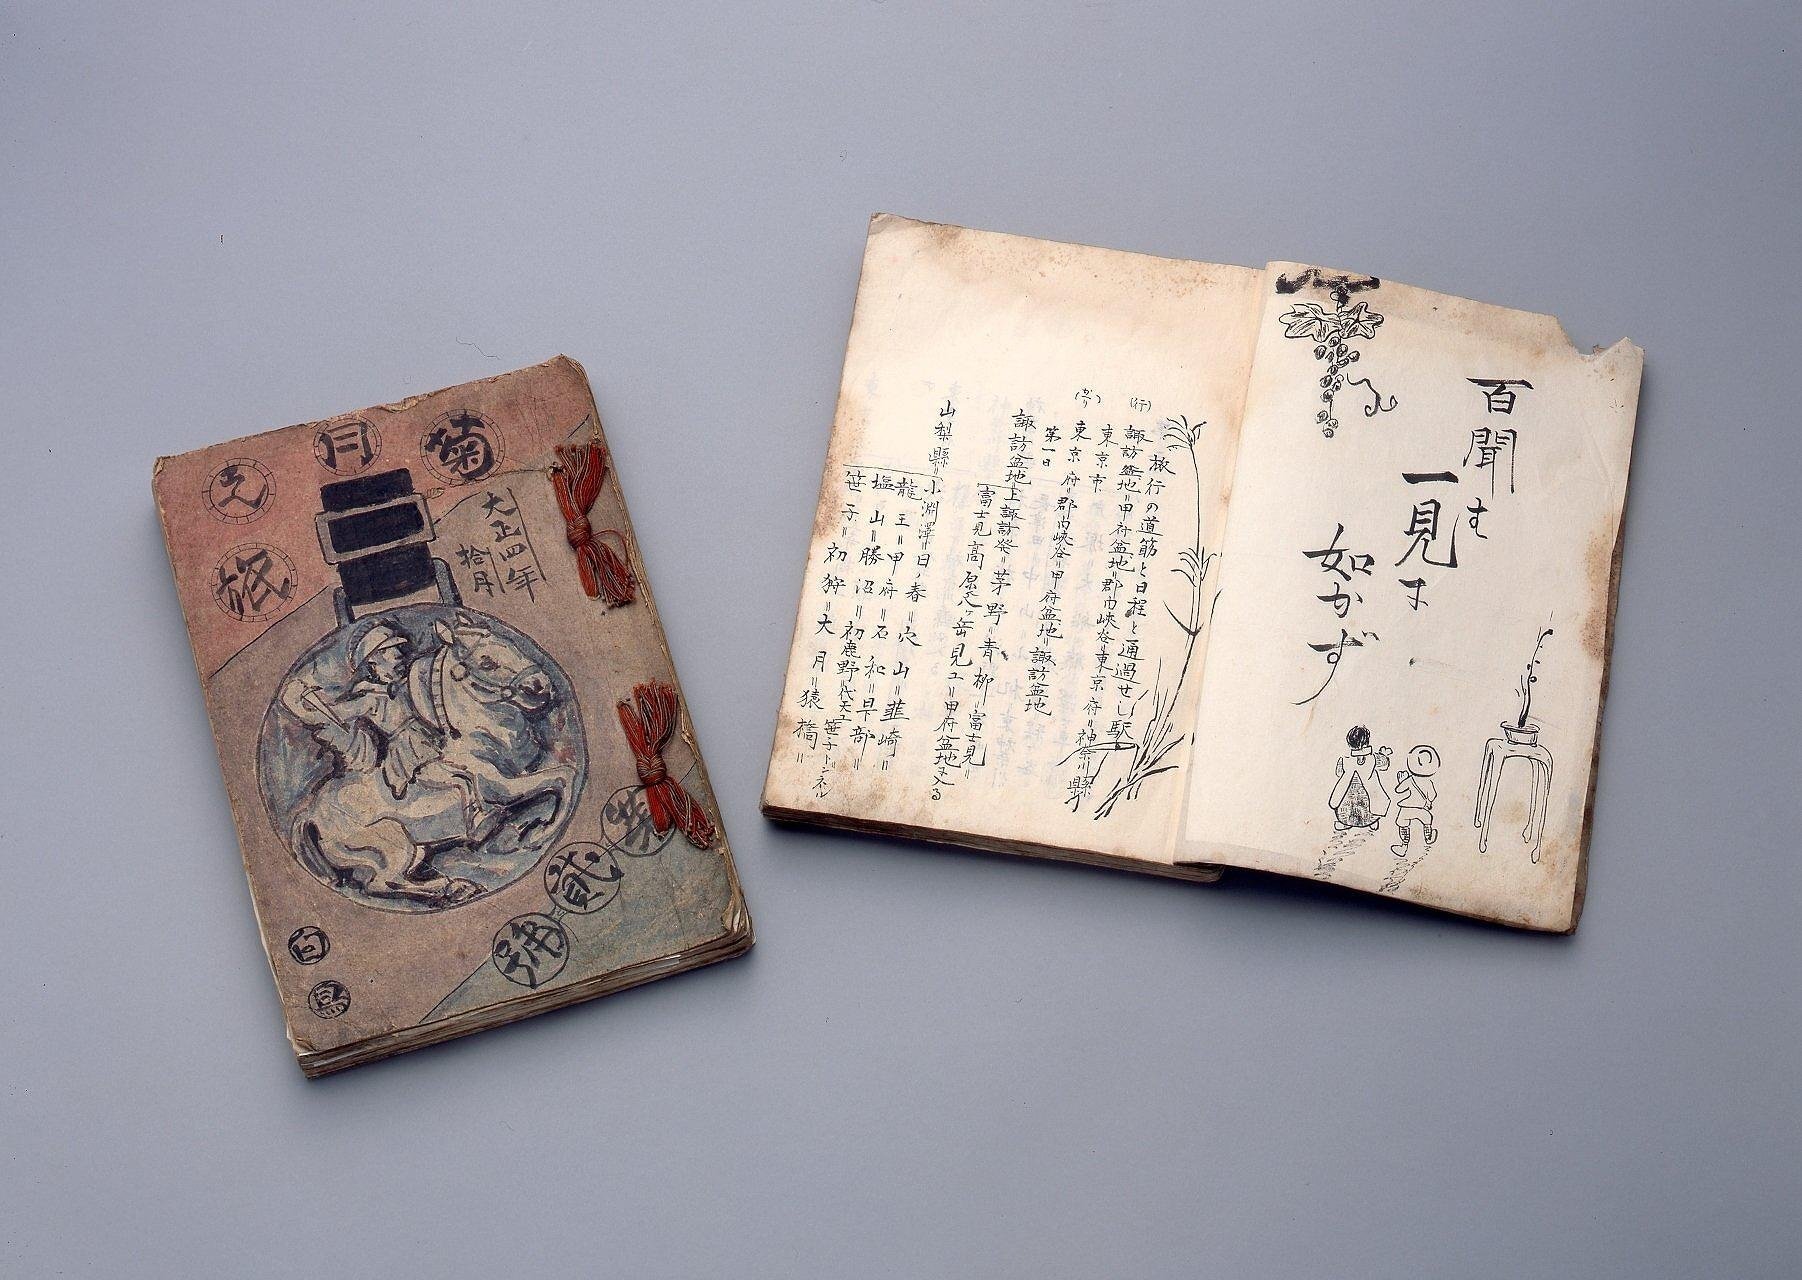 菊月
之
旅
大正四年
拾月
第貳號
白鳥
百聞は
一見に
如かず
旅行の道筋と日程と通過せし駅
(行)
諏訪盆地=甲府盆地=郡内峡谷=東京府=神奈川縣
東京市
(かへり)
東京府=郡内峡谷=甲府盆地=諏訪盆地
第一日
諏訪盆地 上諏訪発=茅野=青柳=富士見=
富士見高原八ヶ岳見ユ=甲府盆地に入る
山梨縣=小淵澤=日ノ春=穴山=韮崎=
龍王=甲府=石和=日下部=
塩山=勝沼=初鹿野=笹子トンネル
笹子=初狩=大月=猿橋=